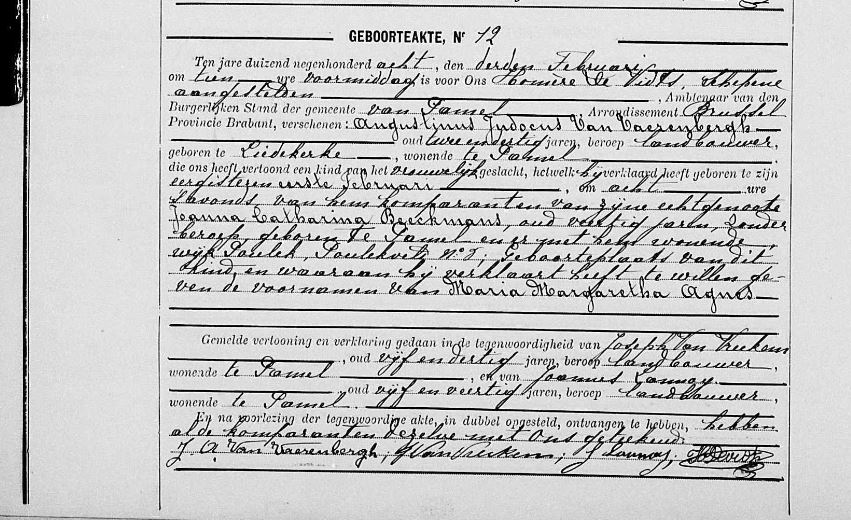 GEBOORTEAKTE, Nr 12
Ten jare duizend negenhonderd acht, den derden Februari
om tien ure voormiddag is voor Ons Homère De Vidts, schepene
aangestelden, Ambtenaar van den
Burgerlijken Stand der gemeente van Pamel Arrondissement Brussel
Provincie Brabant, verschenen: Augustinus Judocus Van Vaerenbergh
oud twee en dertig jaren, beroep landbouwer,
geboren te Liedekerke, wonende te Pamel
die ons heeft vertoond een kind van het vrouwelijk geslacht, hetwelk hij verklaard heeft geboren te zijn
eergisteren eerste Februari, om acht ure
's avonds, van hem komparanten van zijne echtgenoote
Joanna Catharina Beeckmans, oud veertig jaren, zonder
beroep, geboren te Pamel en er met hem wonende,
wijk N° 2, geboorteplaats van dit
kind, en waaraan hij verklaart heeft te willen ge-
ven de voornamen van Maria Margaretha Agnes
Gemelde vertooning en verklaring gedaan in de tegenwoordigheid van Joseph Van Vreckem
, oud vijf en dertig jaren, beroep landbouwer,
wonende te Pamel, en van Joannes Lannoy
, oud vijf en veertig jaren, beroep landbouwer,
wonende te Pamel.
En na voorlezing der tegenwoordige akte, in dubbel opgesteld, ontvangen te hebben, hebben
al de komparanten dezelve met Ons geteekend.
J A Van Vaerenbergh, J Van Vreckem, J Lannoy, HDevidts